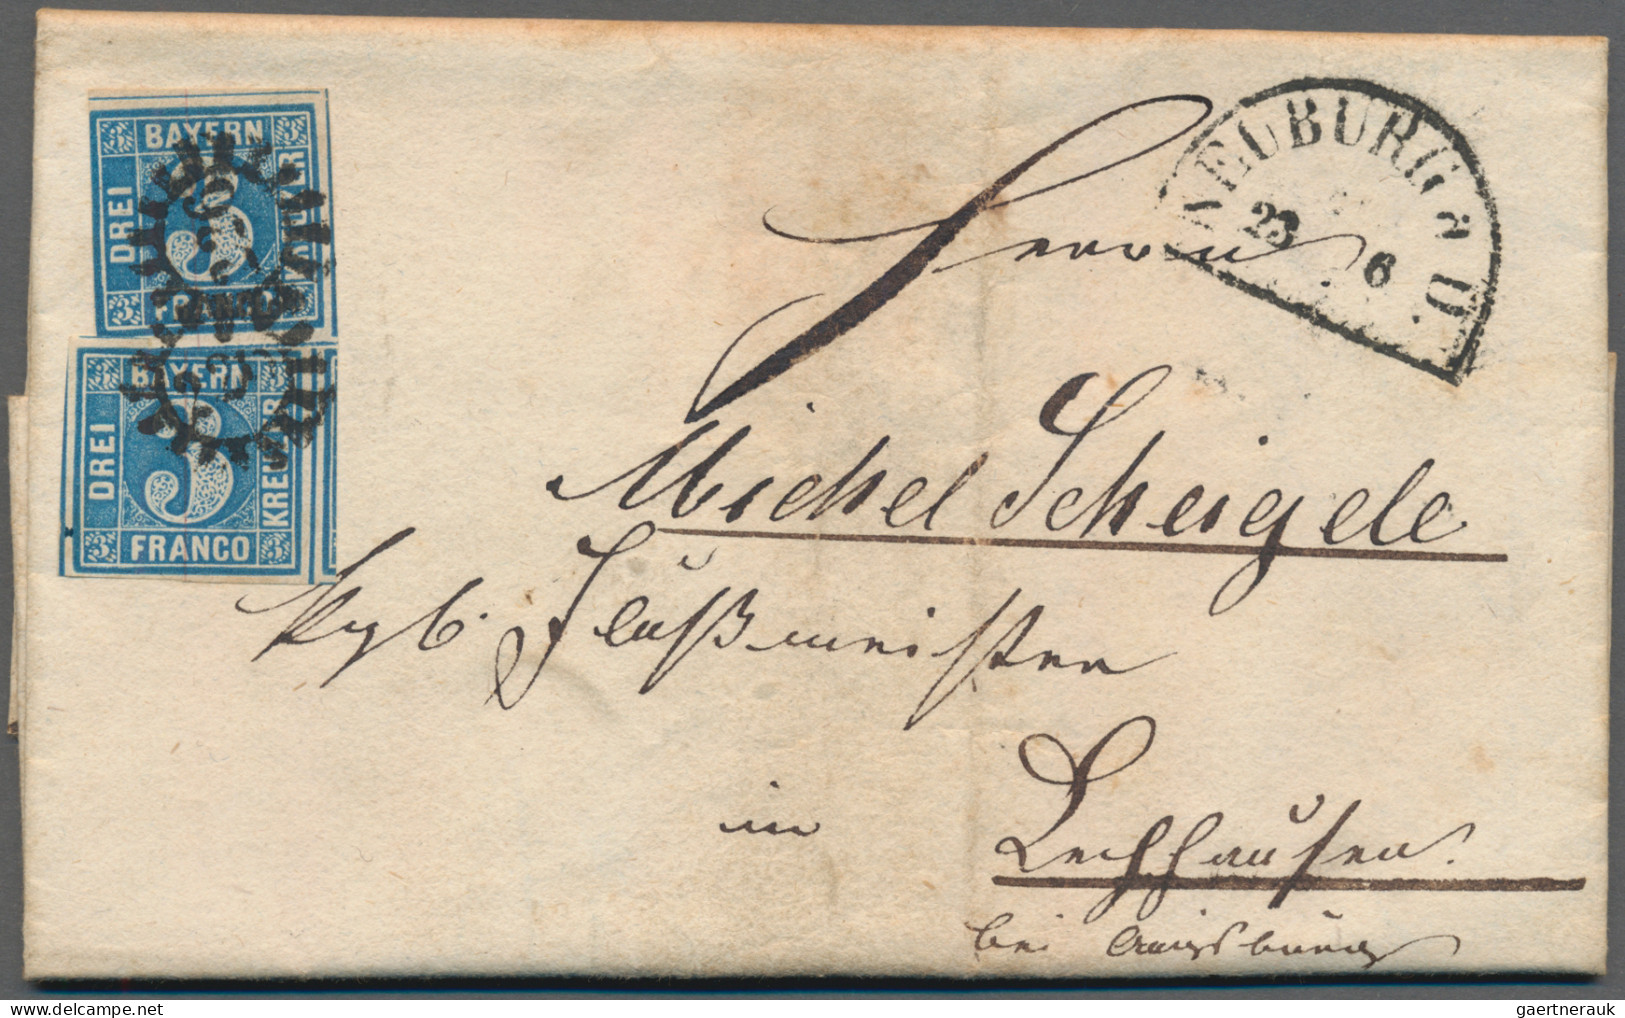 3 BAYERN 3
DREI 3 KREUZER
3 FRANCO 3
3 BAYERN 3
DREI 3 KREUZER
3 FRANCO 3
NEUBURG a D.
23 6
Herrn
Michel Scheigele
kgb. Flußmeister
in
Lechhausen.
bei Augsburg
hipstamp.com
gaertnerauk